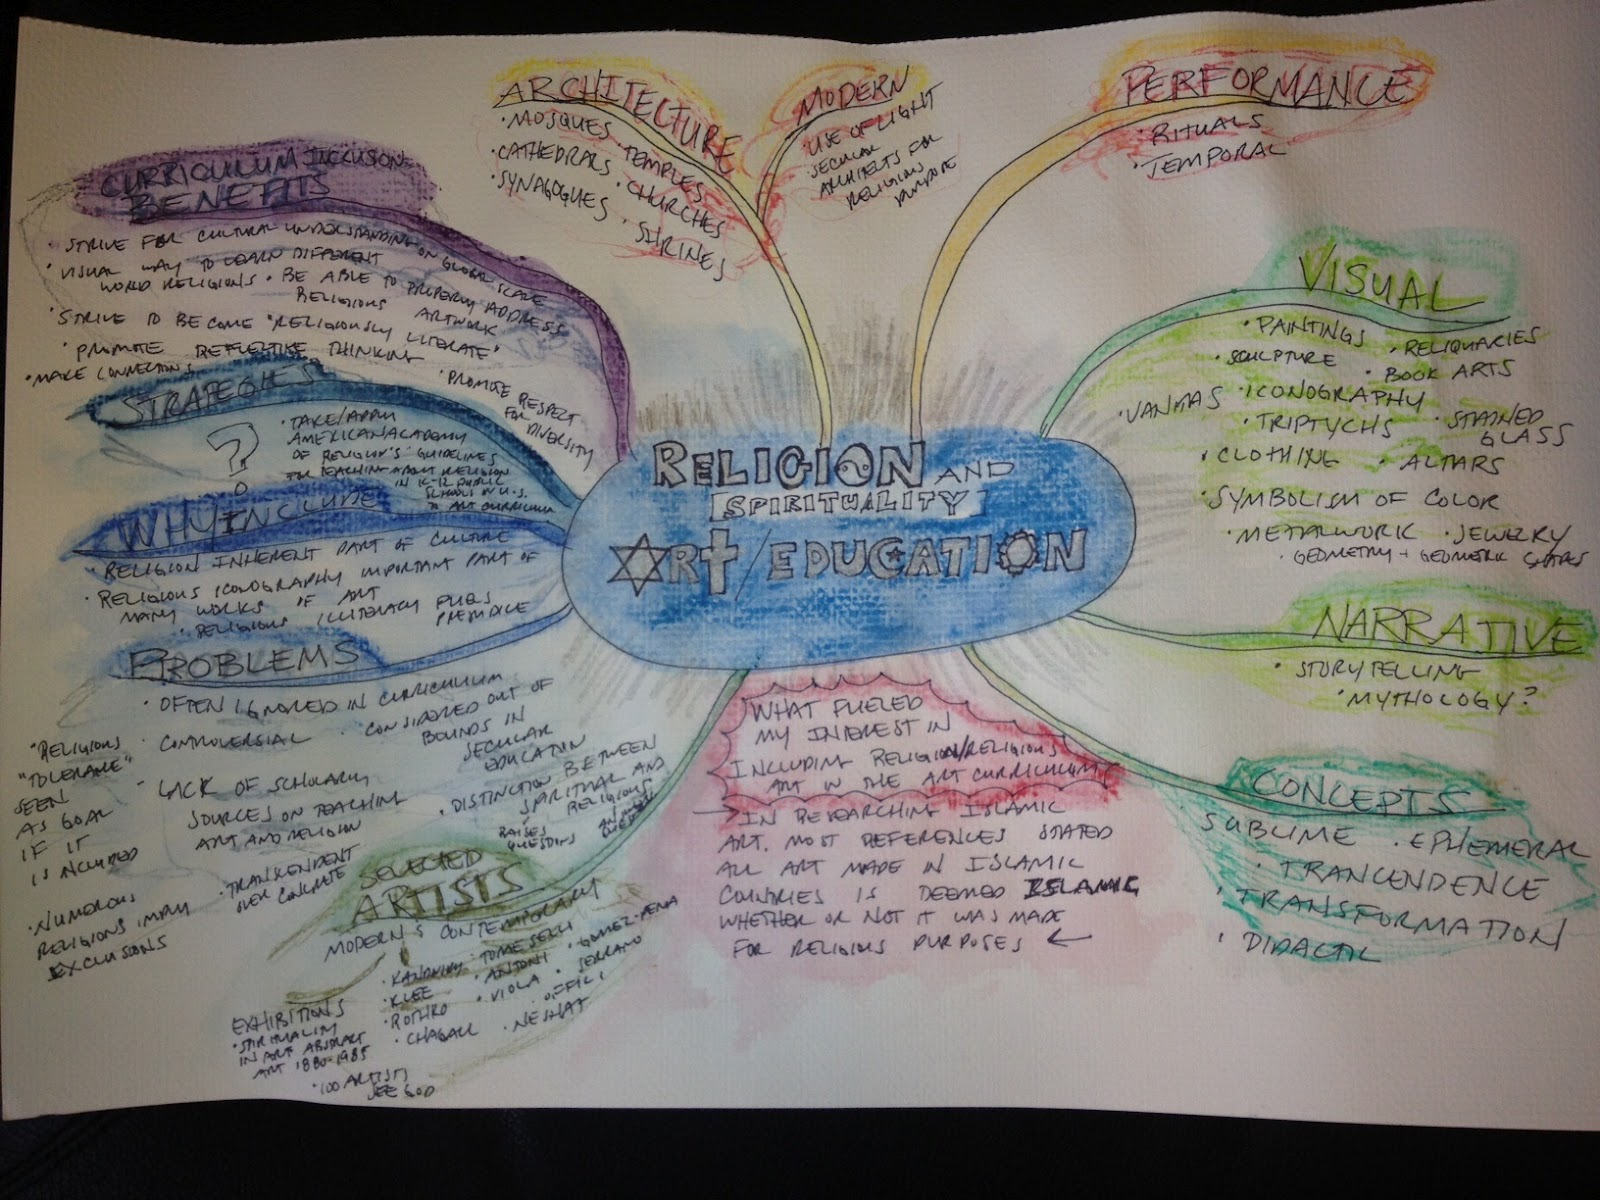 RELIGION AND
[SPIRITUALITY]
ART / EDUCATION
ARCHITECTURE
· MOSQUES · TEMPLES
· CATHEDRALS · CHURCHES
· SYNAGOGUES · SHRINES
MODERN
· USE OF LIGHT
SECULAR
ARCHITECTS FOR
RELIGIOUS
PURPOSE
PERFORMANCE
· RITUALS
· TEMPORAL
VISUAL
· PAINTINGS · RELIQUARIES
· SCULPTURE · BOOK ARTS
· ICONOGRAPHY
· TRIPTYCHS · STAINED
GLASS
· CLOTHING · ALTARS
· SYMBOLISM OF COLOR
· METALWORK · JEWELRY
· GEOMETRY + GEOMETRIC
NARRATIVE
· STORYTELLING
· MYTHOLOGY?
CONCEPTS
SUBLIME · EPHEMERAL
· TRANCENDENCE
· TRANSFORMATION
· DIDACTIC
WHAT FUELED
MY INTEREST IN
INCLUDING RELIGION/RELIGIOUS
ART IN THE ART CURRICULUM?
→ IN RESEARCHING ISLAMIC
ART, MOST REFERENCES STATED
ALL ART MADE IN ISLAMIC
COUNTRIES IS DEEMED ISLAMIC
WHETHER OR NOT IT WAS MADE
FOR RELIGIOUS PURPOSES ←
SELECTED
ARTISTS
MODERN & CONTEMPORARY
· KANDINSKY · TOMASELLI · GOMEZ-PEÑA
· KLEE · ANTONI · SERRANO
· ROTHKO · VIOLA · OFFILI
· CHAGALL · NESHAT
EXHIBITIONS
· SPIRITUAL IN
IN ART ABSTRACT
ART 1880-1985
· 100 ARTISTS
SEE GOD
PROBLEMS
· OFTEN IGNORED IN CURRICULUM
· CONTROVERSIAL · CONSIDERED OUT OF
BOUNDS IN
SECULAR
EDUCATION
"RELIGIOUS
"TOLERANCE"
SEEN
AS GOAL
IF IT
IS INCLUDED
- LACK OF SCHOLARLY
SOURCES ON TEACHING
ART AND RELIGION
· DISTINCTION BETWEEN
SPIRITUAL AND
RELIGIOUS
RAISES
QUESTIONS
· TRANSCENDENT
OVER CONCRETE
· NUMEROUS
RELIGIONS IMPLY
EXCLUSIONS
WHY INCLUDE
· RELIGION INHERENT PART OF CULTURE
· RELIGIOUS ICONOGRAPHY IMPORTANT PART OF
MANY WORKS OF ART
· RELIGIOUS ILLITERACY FUELS
PREJUDICE
STRATEGIES
?
· TAKE/APPLY
AMERICAN ACADEMY
OF RELIGION'S "GUIDELINES
FOR TEACHING ABOUT RELIGION
IN K-12 PUBLIC
SCHOOLS IN U.S.
TO ART CURRICULUM
CURRICULUM INCLUSION
BENEFITS
· STRIVE FOR CULTURAL UNDERSTANDING ON GLOBAL SCALE
· VISUAL WAY TO LEARN DIFFERENT
WORLD RELIGIONS · BE ABLE TO PROPERLY ADDRESS
RELIGIOUS ARTWORK
· STRIVE TO BECOME "RELIGIOUSLY LITERATE"
· PROMOTE REFLECTIVE THINKING
· MAKE CONNECTIONS
· PROMOTE RESPECT
FOR DIVERSITY